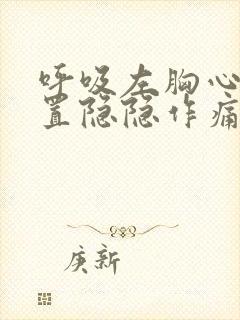 呼吸左胸心
置隐隐作痛
庚新